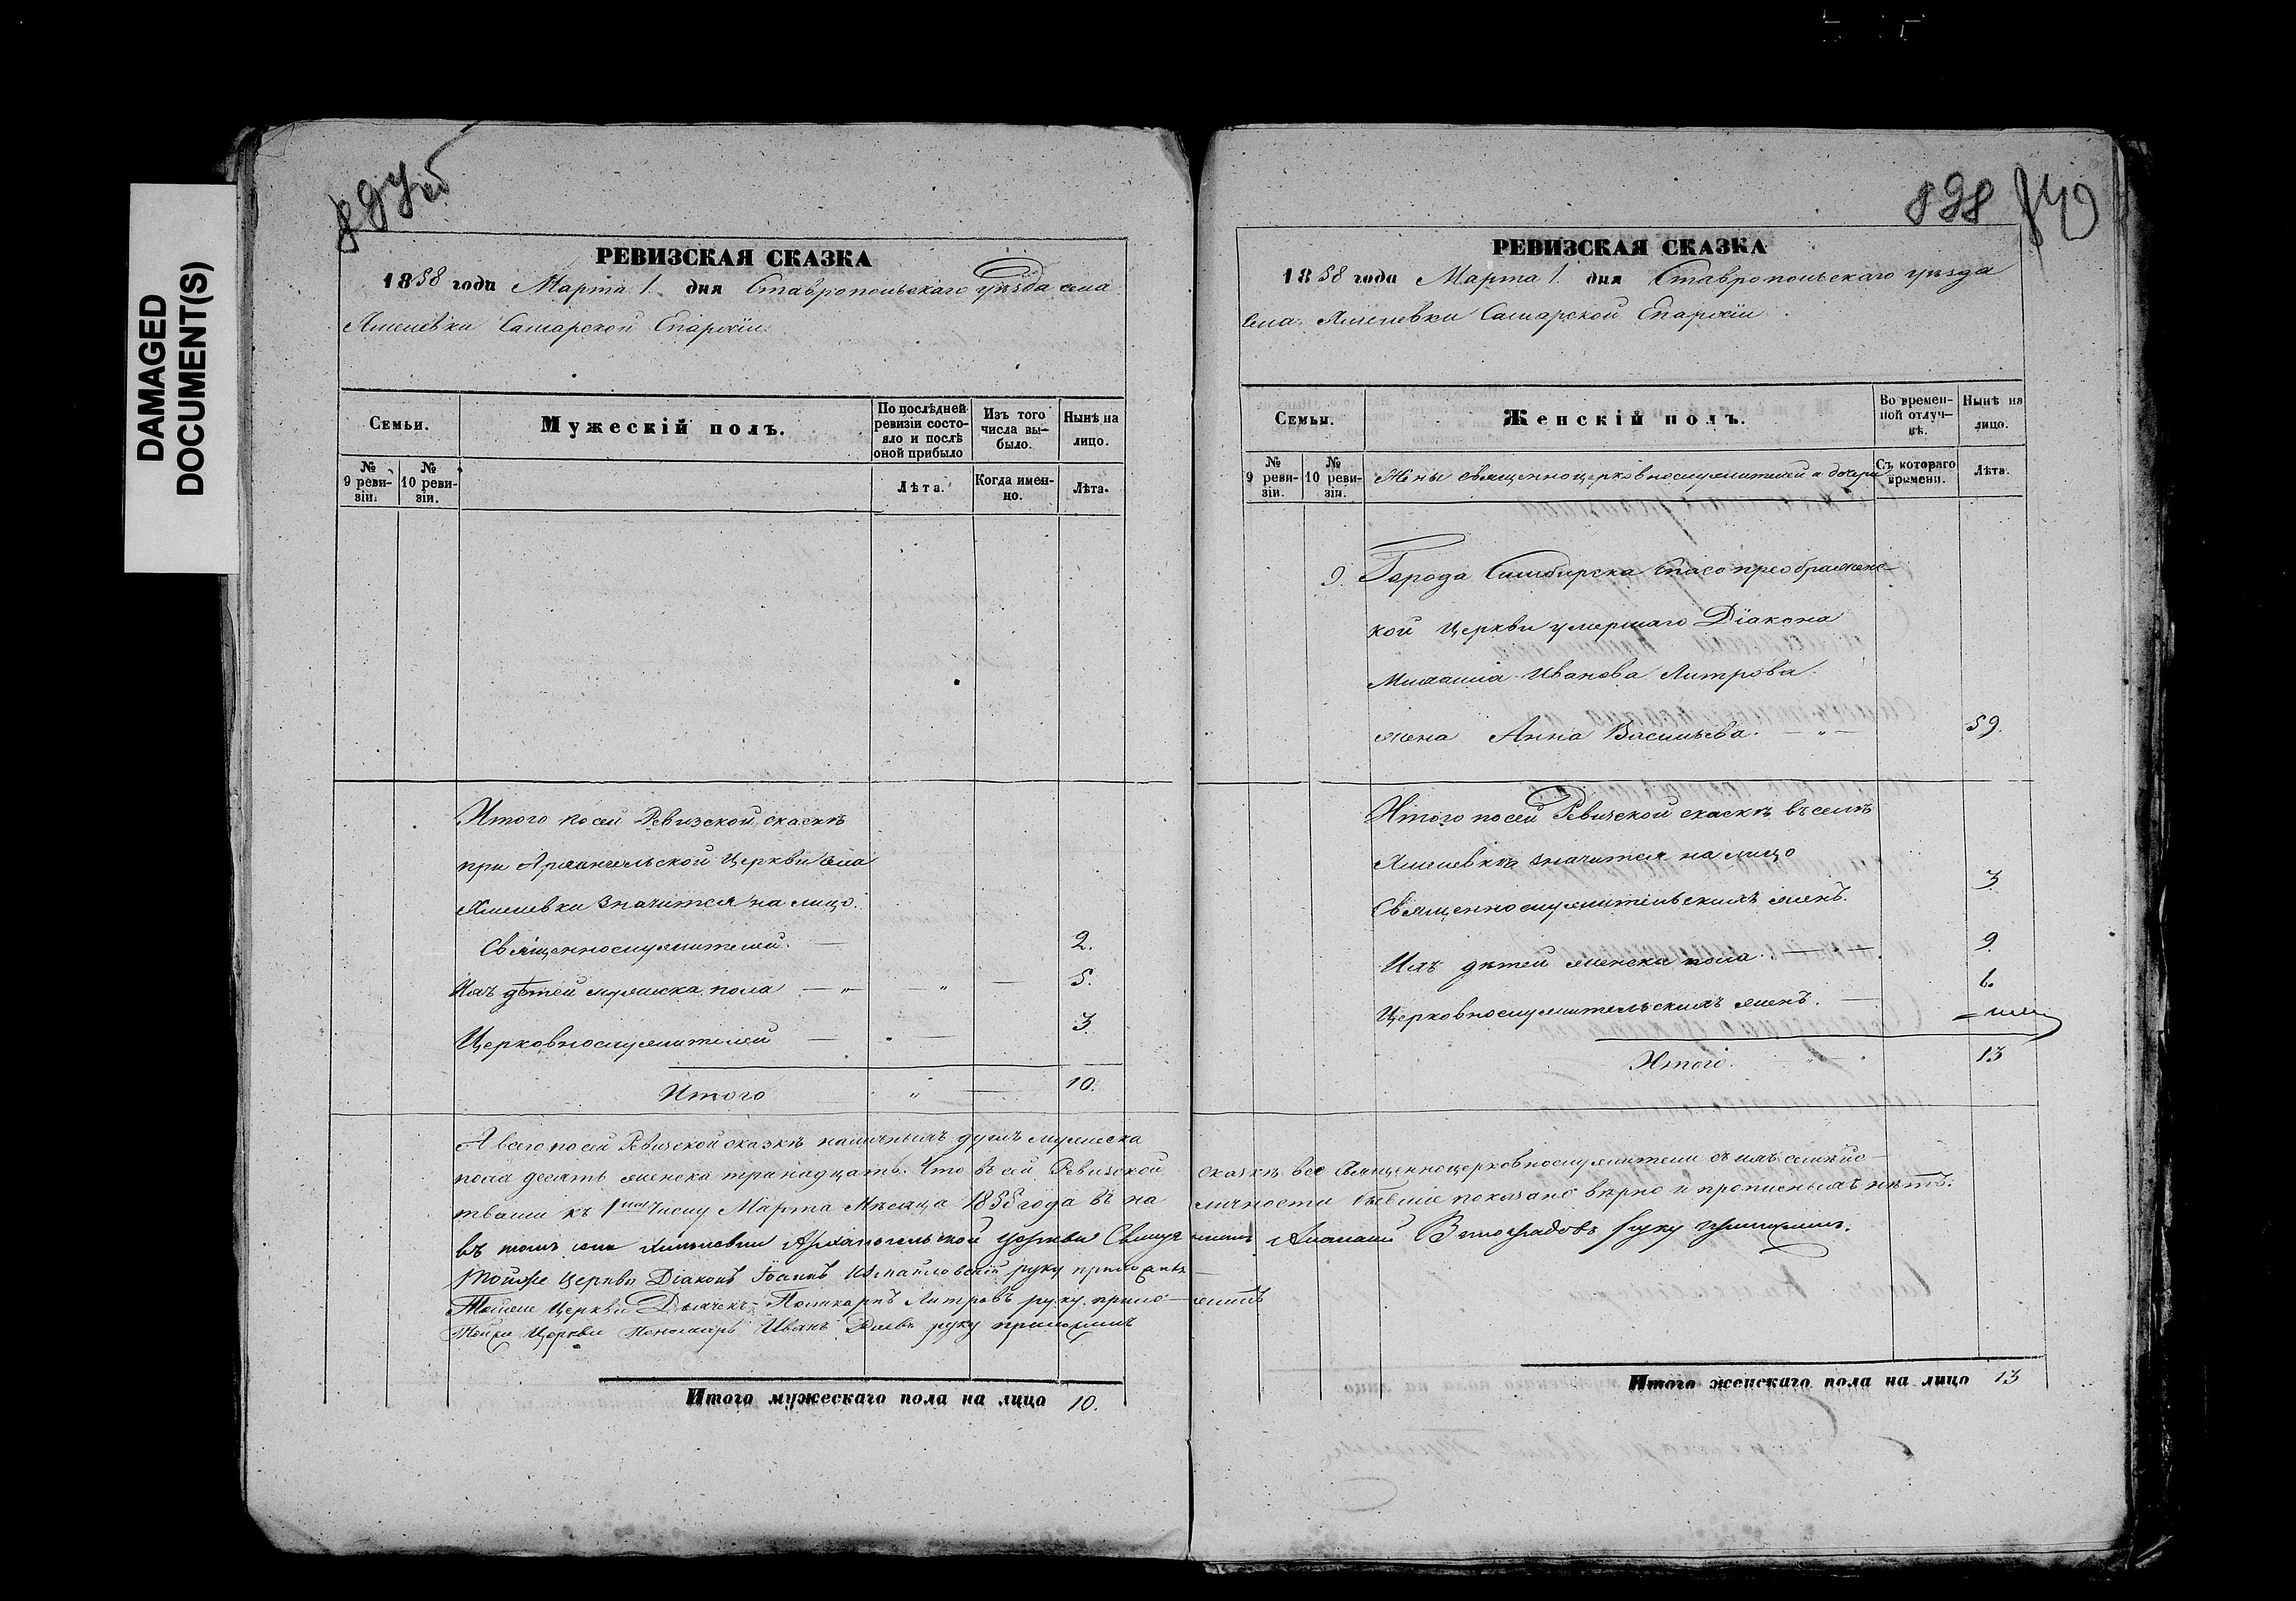 DAMAGED
DOCUMENT(S)
РЕВИЗСКАЯ СКАЗКА
1858 года Марта 1. дня Ставропольскаго уѣзда села
Самарской Епархіи.
Семьи.
Мужескій полъ.
По послѣдней ревизіи состояло и послѣ оной прибыло
Изъ того числа выбыло.
Нынѣ на лицо.
№ 9 ревизіи.
№ 10 ревизіи.
Лѣта.
Когда именно.
Лѣта.
Итого по сей Ревизской сказкѣ
при Архангельской Церкви села
значится на лицо.
Священнослужителей. — 2.
Ихъ дѣтей мужеска пола — „ — „ — 5.
Церковнослужителей — 3
Итого „ 10.
А всего по сей Ревизской сказкѣ наличныхъ душъ мужеска
пола десять женска тринадцать. Что въ сей Ревизской
къ 1му числу Марта Мѣсяца 1858 года въ на
въ томъ села Архангельской церкви Священ
Тойже Церкви Діаконъ Іоаннъ Измайловскій руку приложилъ
Тойже Церкви Дьячекъ Поликарпъ Литровъ руку прило
Тойже Церкви Пономарь Иванъ руку приложилъ
Итого мужескаго пола на лицо 10.
898
РЕВИЗСКАЯ СКАЗКА
1858 года Марта 1. дня Ставропольскаго уѣзда
села Самарской Епархіи
Семьи.
Женскій полъ.
Во временной отлучкѣ.
Нынѣ на лицо.
№ 9 ревизіи.
№ 10 ревизіи.
Жены священноцерковнослужителей и дочери
Съ котораго времени.
Лѣта.
9. Города Симбирска Спасопреображенс-
кой Церкви умершаго Діакона
Михаила Иванова Литрова.
жена Анна Васильева. — „ — 59.
Итого по сей Ревизской сказкѣ въ селѣ
значится на лицо
Священнослужительскихъ женъ. 3
Ихъ дѣтей женска пола. — „ — 9.
Церковнослужительскихъ женъ. — 1.
Итого. „ 13
сказкѣ все священноцерковнослужители съ ихъ
личности бывшіе показано вѣрно и прописныхъ нѣтъ.
никъ Виноградовъ руку приложилъ.
жилъ
Итого женскаго пола на лицо 13